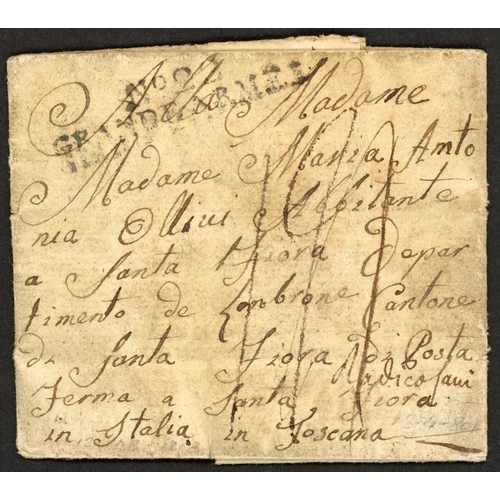 Nº 22
GRANDE ARMÉE
Alla Madame
Madame Maria Anto
nia Ollivi Abbitante
a Santa Fiora Depar
timento de Lombrone Cantone
di Santa Fiora di Posta
Radicofani
Ferma a Santa Fiora
in Italia in Toscana